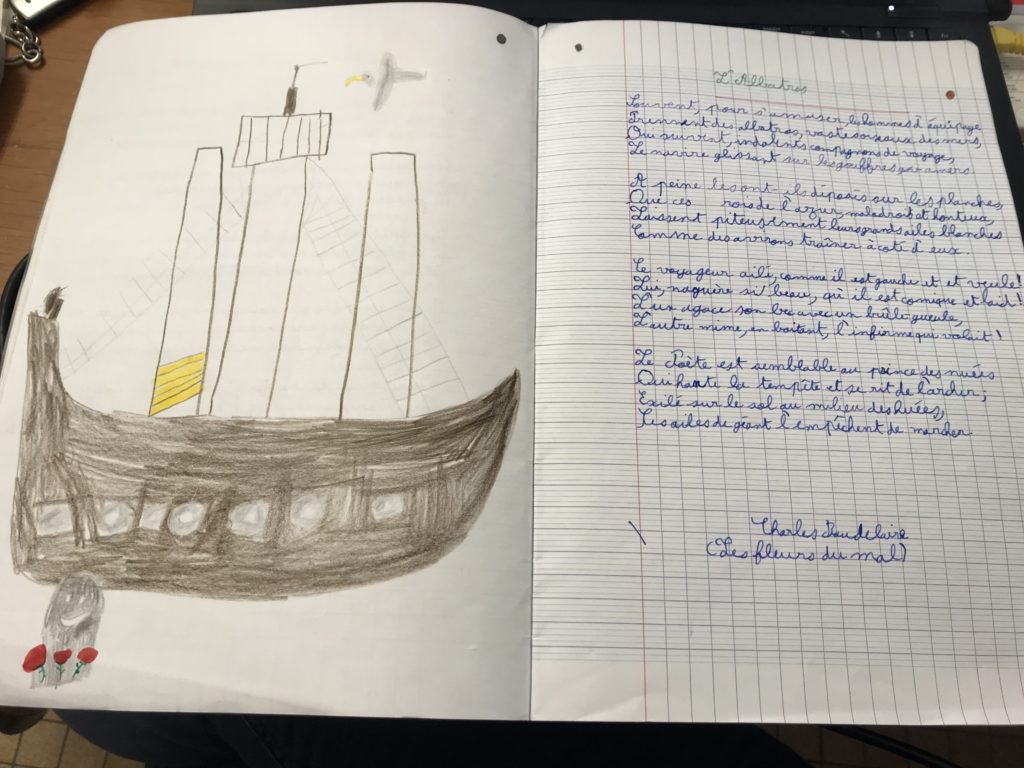 L'Albatros
Souvent, pour s'amuser, les hommes d'équipage
Prennent des albatros, vastes oiseaux des mers,
Qui suivent, indolents compagnons de voyage,
Le navire glissant sur les gouffres amers
A peine les ont-ils déposés sur les planches
Que ces rois de l'azur, maladroit et honteux
Laissent piteusement leurs grands ailes blanches
Comme des avirons traîner à coté d'eux.
Ce voyageur ailé, comme il est gauche et et veule!
Lui, naguère si beau, qu'il est comique et laid!
L'un agace son bec avec un brûle gueule,
L'autre mime, en boitant, l'infirme qui volait!
Le Poète est semblable au prince des nuées
Qui hante la tempête et se rit de l'archer;
Exilé sur le sol au milieu des huées,
Ses ailes de géant l'empêchent de marcher.
Charles Baudelaire
(Les fleurs du mal)